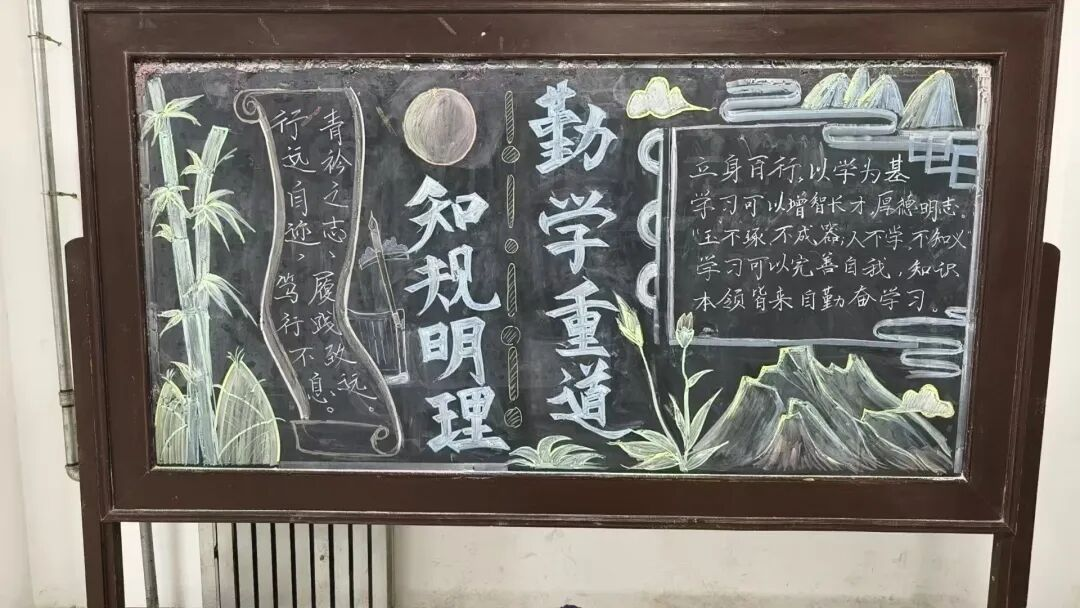 立身百行,以学为基
学习可以增智长才,厚德明志。
"玉不琢,不成器;人不学,不知义"
学习可以完善自我,知识
本领皆来自勤奋学习。
勤学重道
知规明理
青衿之志、履践致远。
行远自迹、笃行不息。